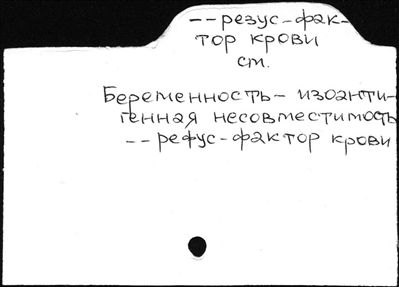 --резус-фак-
тор крови
см.
Беременность- изоанти-
генная несовместимость
--рефус-фактор крови